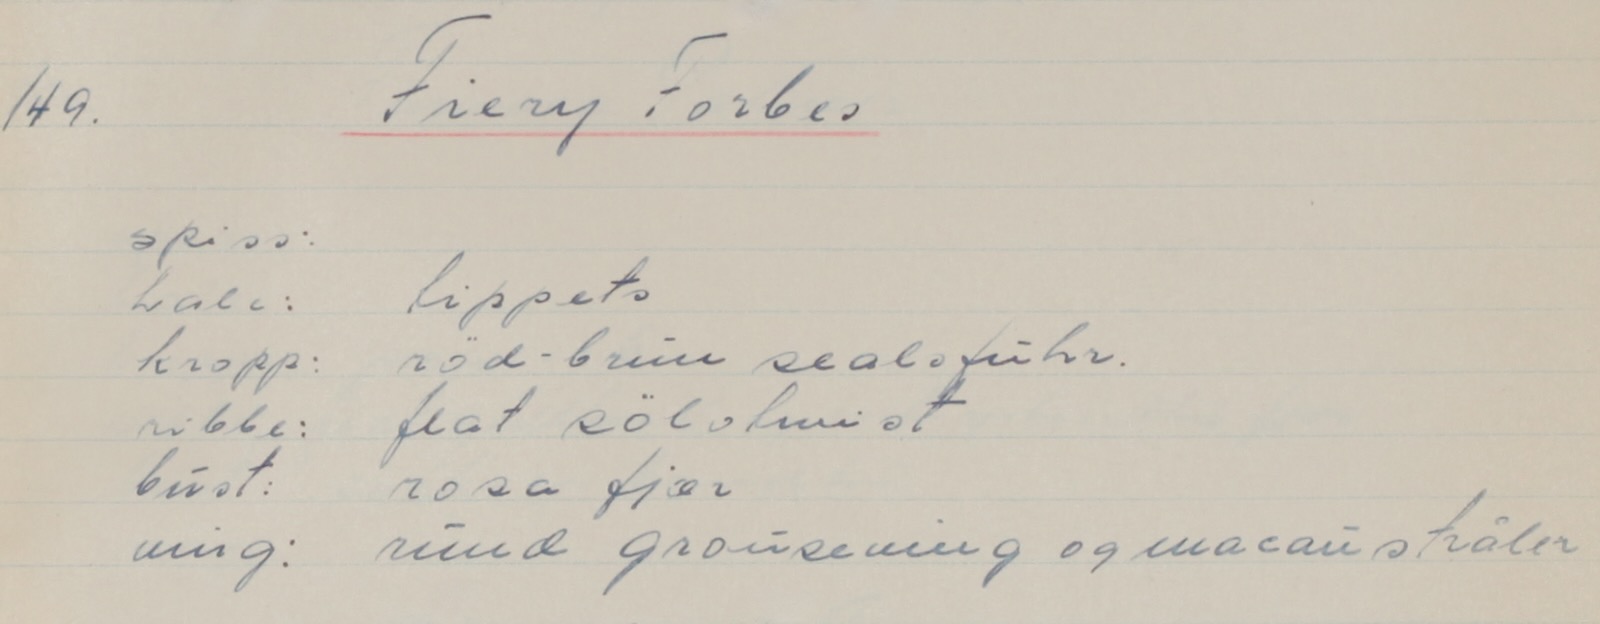 149. Fiery Forbes
spiss:
hale: tippets
kropp: röd-brun sealsfuhr.
ribbe: flat sölvtwist
bust: rosa fjær
ving: rund grouseving og macaustråler